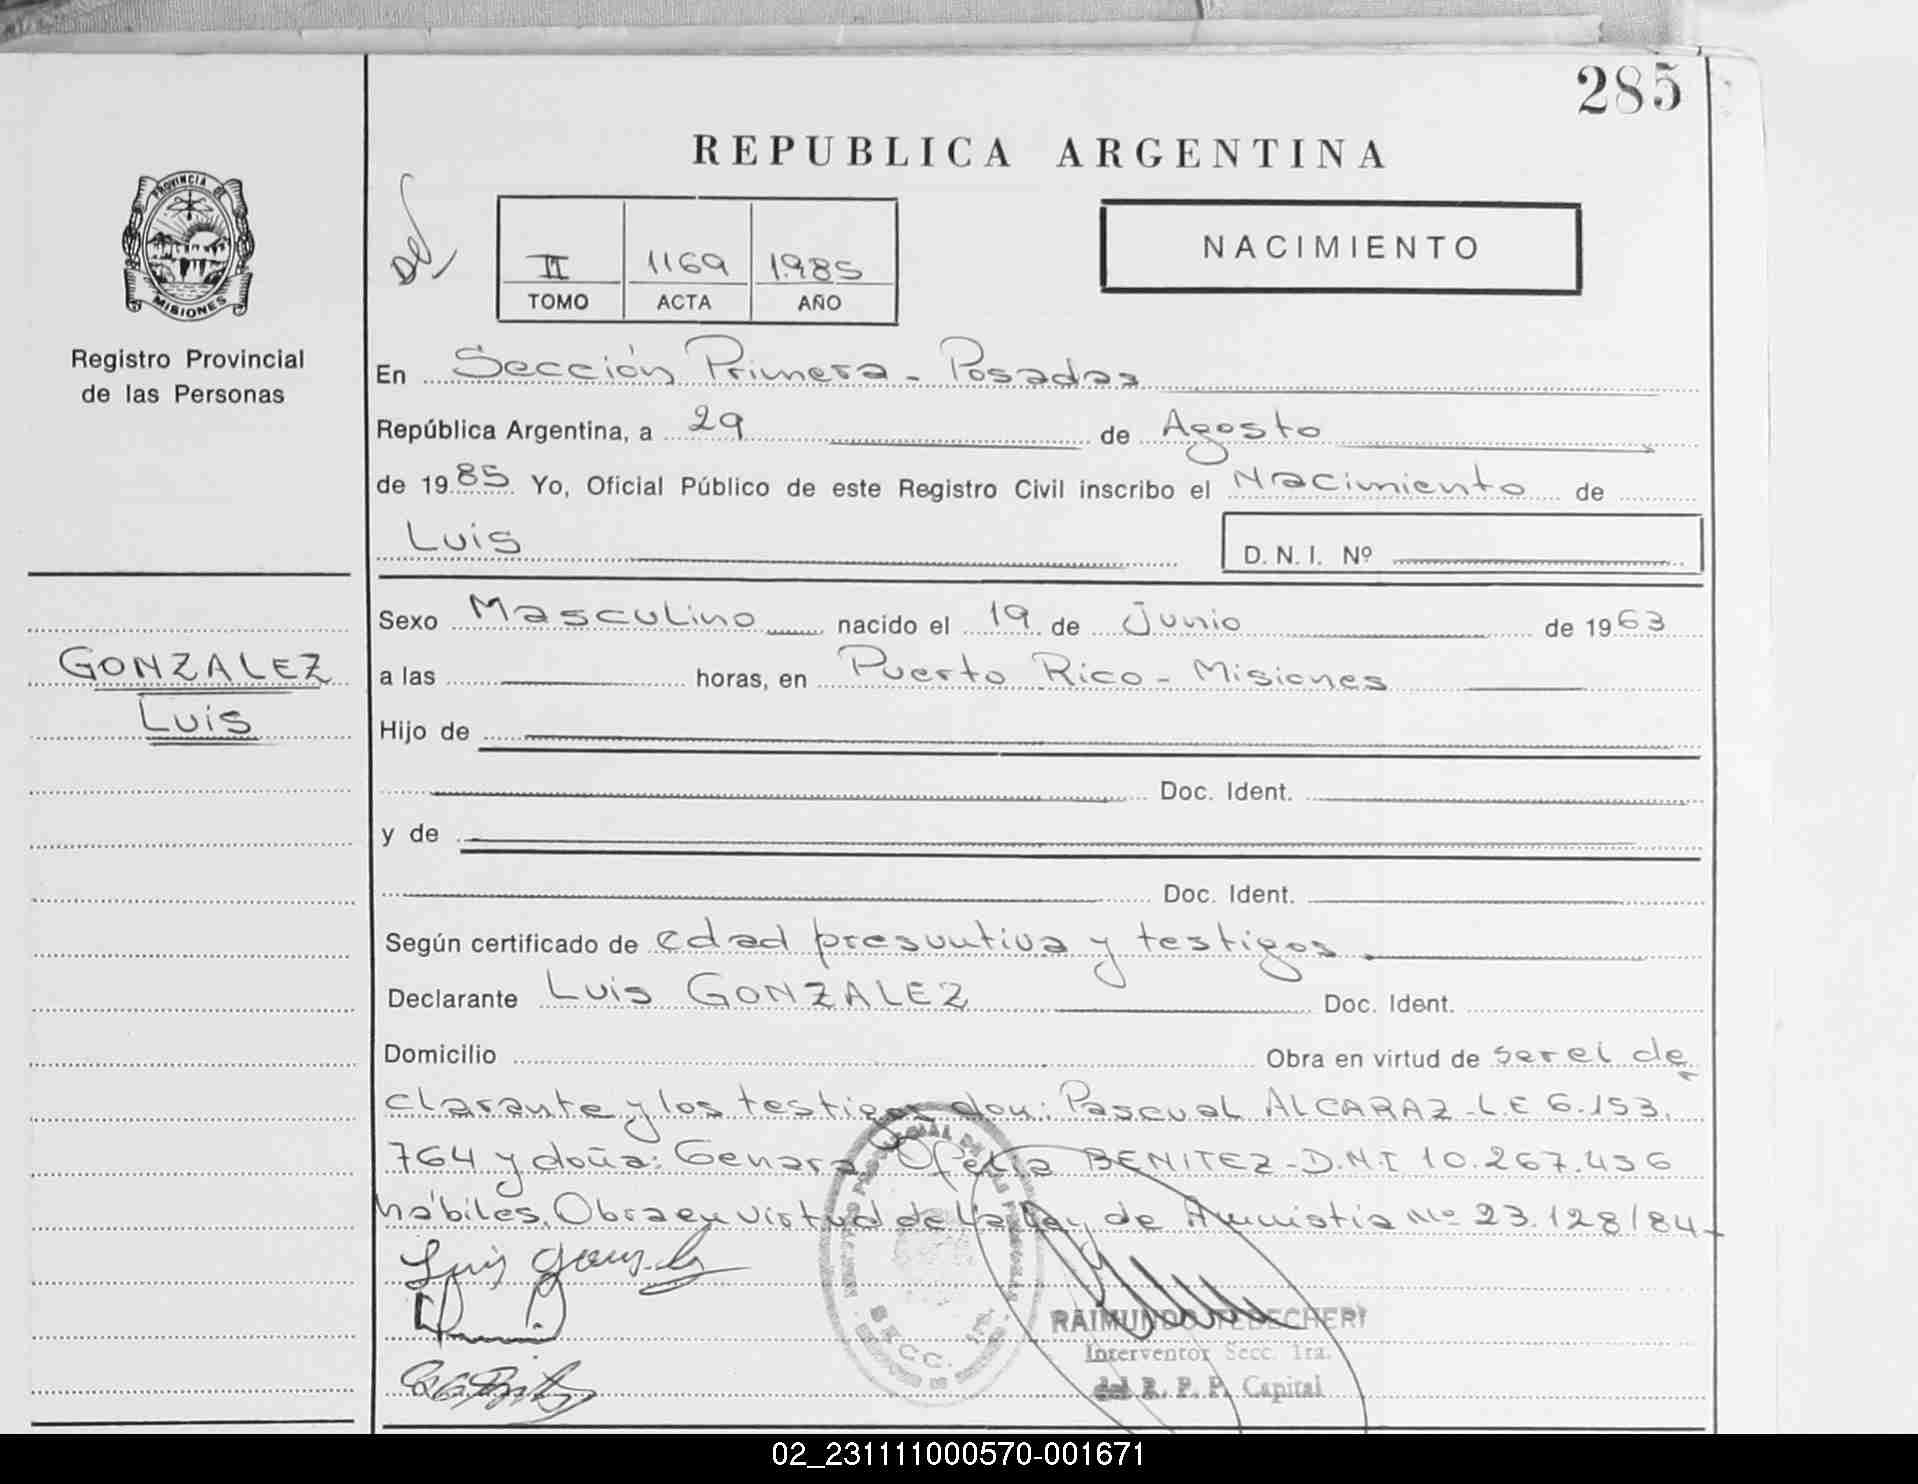 285
REPUBLICA ARGENTINA
PROVINCIA DE
MISIONES
Registro Provincial
de las Personas
II 1169 1985
TOMO ACTA AÑO
NACIMIENTO
En Sección Primera - Posadas
República Argentina, a 29 de Agosto
de 1985 Yo, Oficial Público de este Registro Civil inscribo el Nacimiento de
Luis D. N. I. Nº
Sexo Masculino nacido el 19 de Junio de 1963
GONZALEZ
Luis
a las horas, en Puerto Rico - Misiones
Hijo de
Doc. Ident.
y de
Doc. Ident.
Según certificado de edad presuntiva y testigos
Declarante Luis GONZALEZ Doc. Ident.
Domicilio Obra en virtud de ser el de
clarante y los testigos don: Pascual ALCARAZ - L.E 6.153.
764 y doña: Genara Ofelia BENITEZ - D.N.I 10.267.456
hábiles. Obra en virtud de la Ley de Amnistia Nº 23.128/84-
Luis
SECC. 1ra.
RAIMUNDO
Interventor Secc. 1ra.
del R. P. P. Capital
02_231111000570-001671